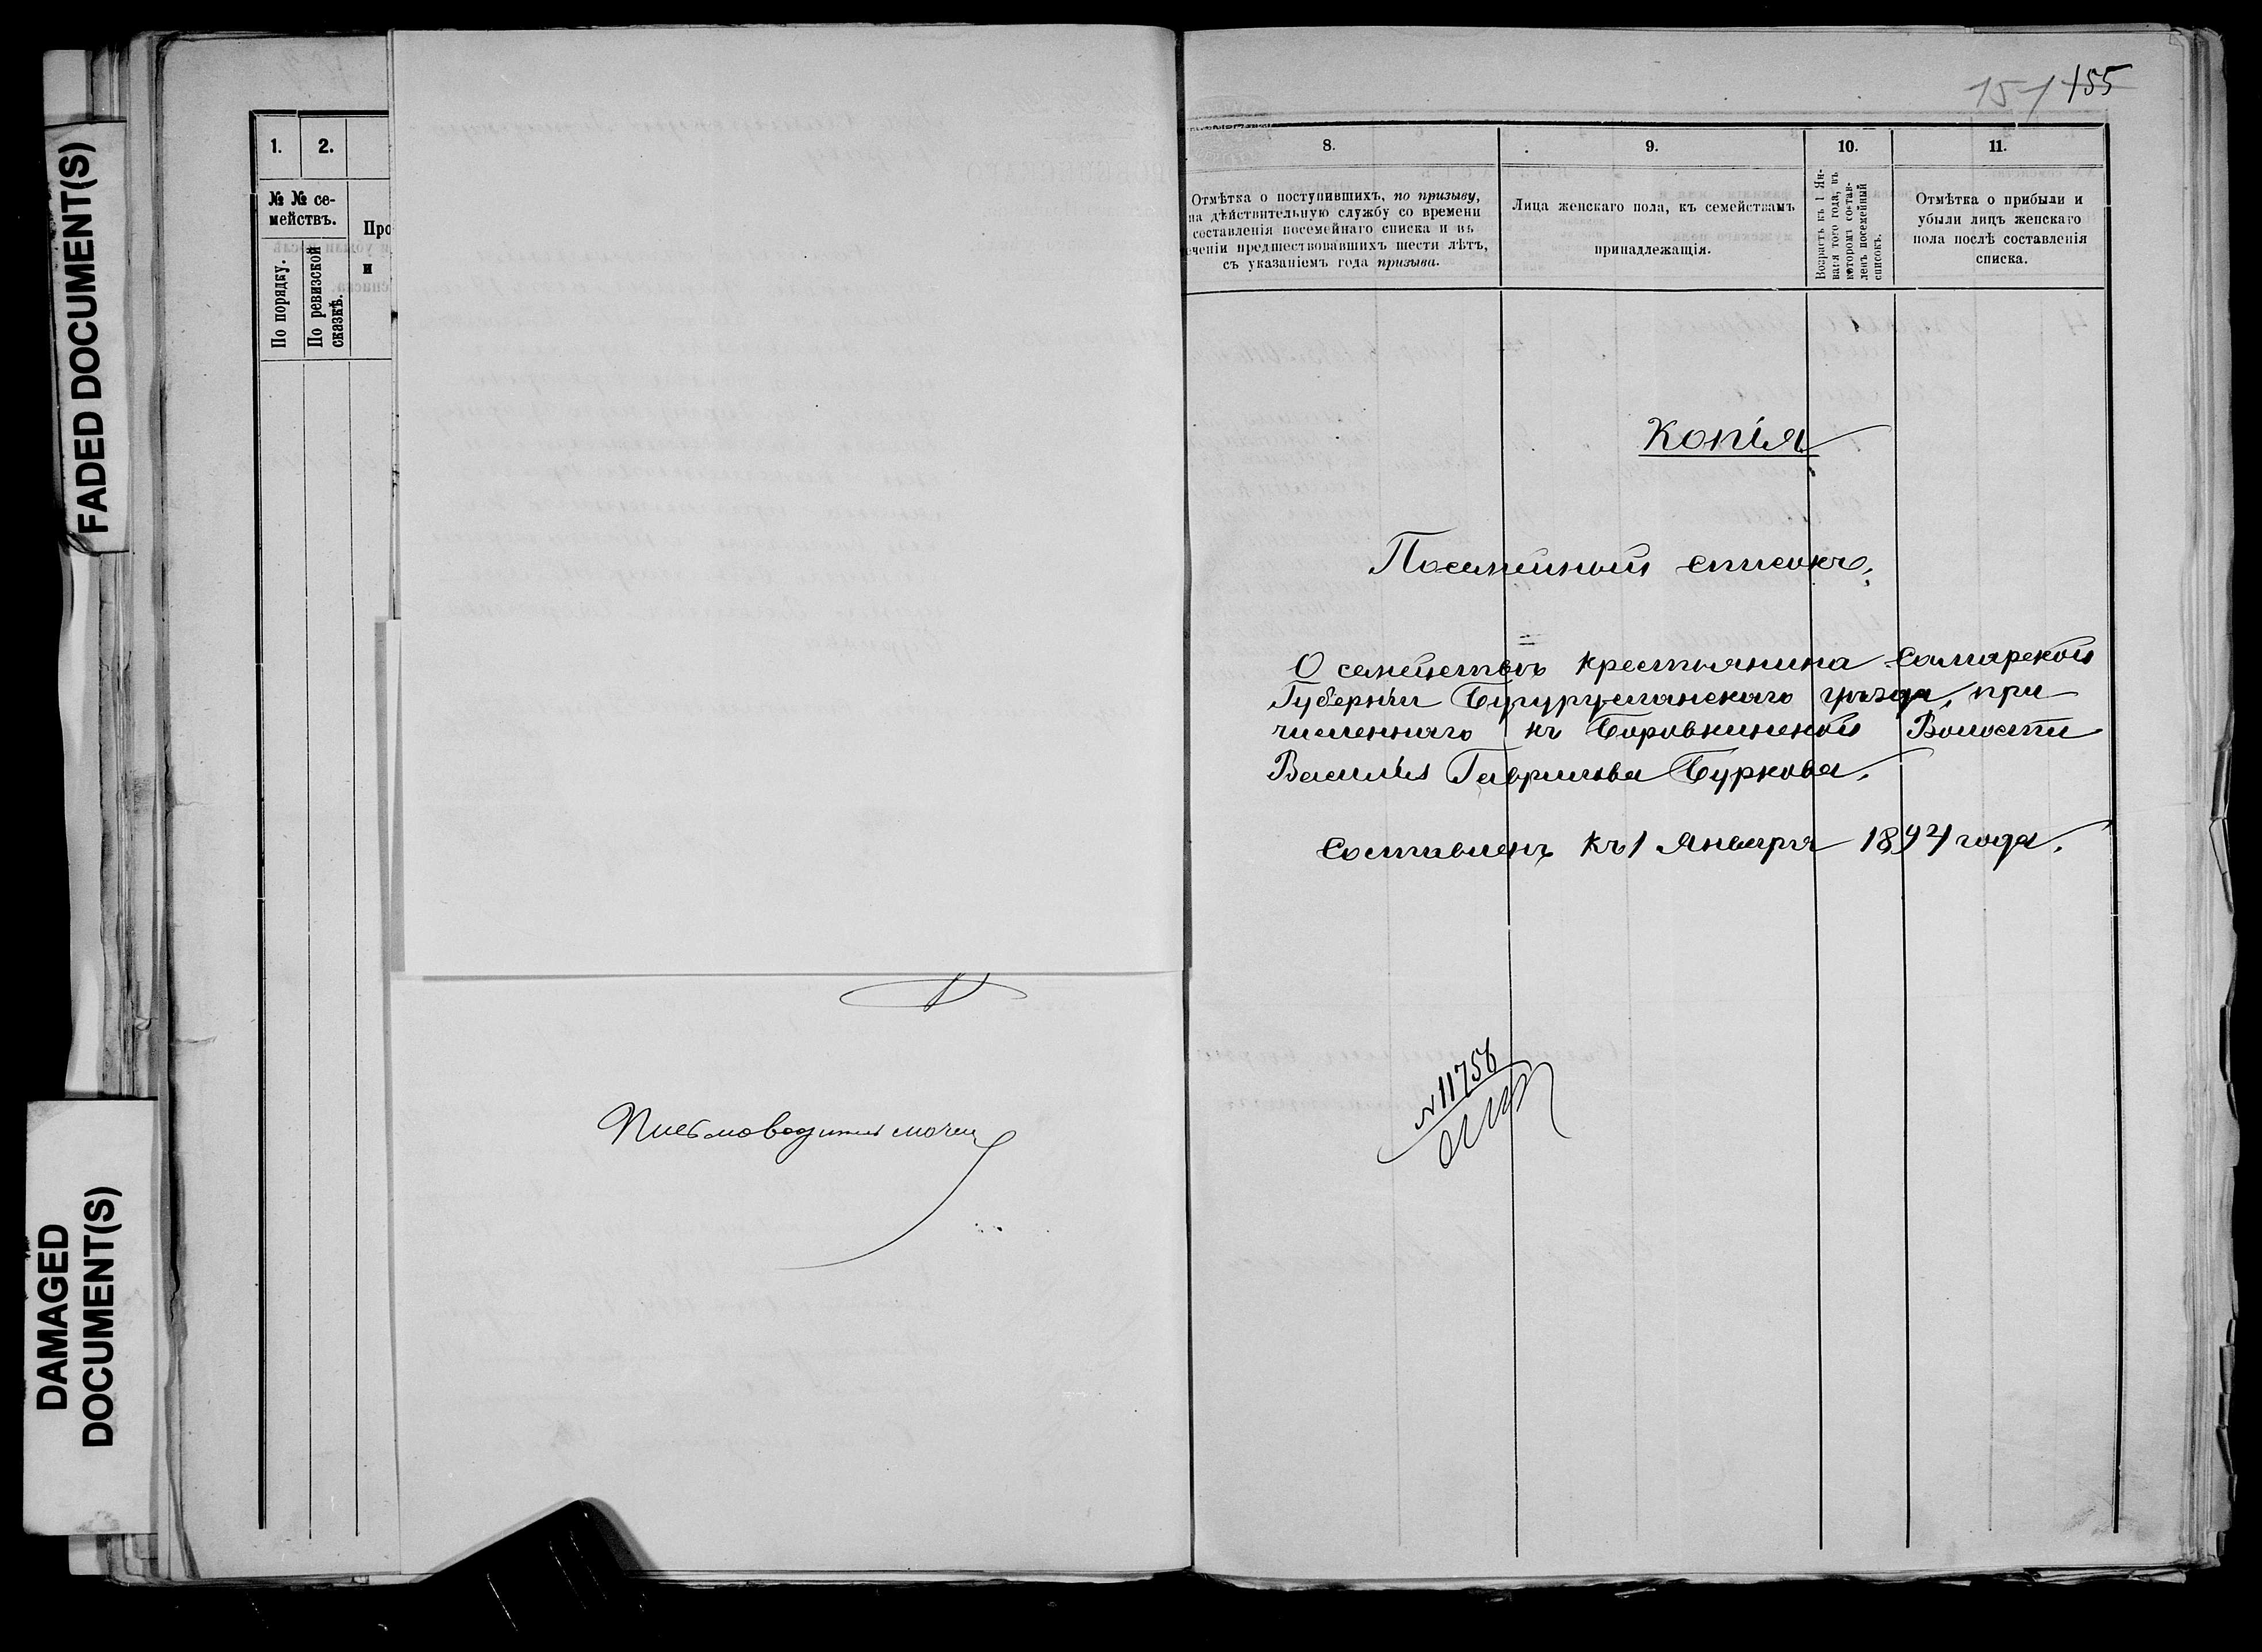 FADED DOCUMENT(S)
DAMAGED
DOCUMENT(S)
1.
2.
№ № се-
мействъ.
По порядку.
По ревизской
сказкѣ.
Про
и
Письмоводитель
155
151
8.
9.
10.
11.
Отмѣтка о поступившихъ, по призыву,
на дѣйствительную службу со времени
составленія посемейнаго списка и въ
еченіи предшествовавшихъ шести лѣтъ,
съ указаніемъ года призыва.
Лица женскаго пола, къ семействамъ
принадлежащія.
Возрастъ къ 1 Ян-
варя того года, въ
которомъ состав-
ленъ посемейный
списокъ.
Отмѣтка о прибыли и
убыли лицъ женскаго
пола послѣ составленія
списка.
Копія
Посемейный списокъ,
О семействѣ крестьянина Самарской
Губерніи Бугурусланскаго уѣзда, при
численнаго къ Боровкинской Волости
Василія Гаврилова Буркова.
Составленъ къ 1 Января 1894 года.
№ 11756